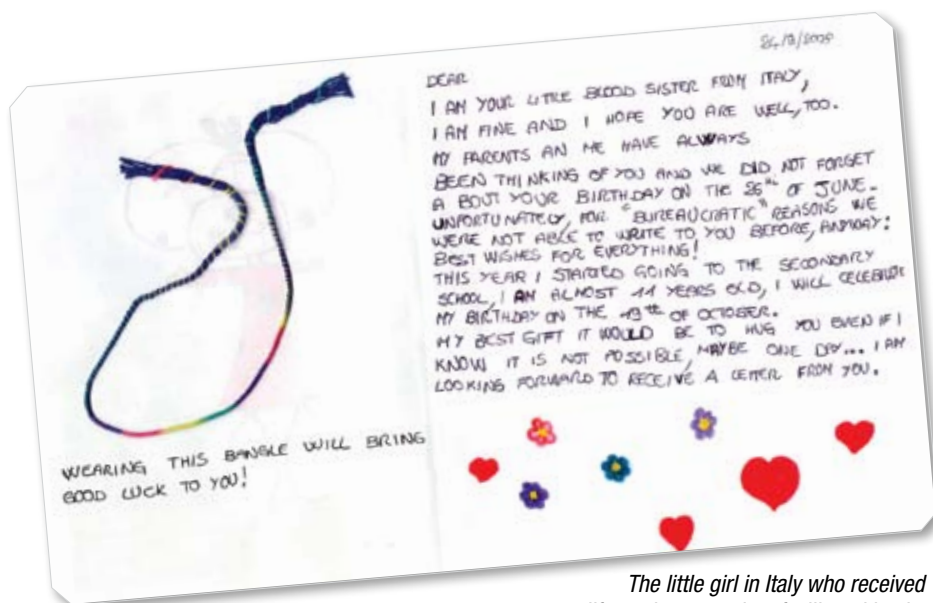 DEAR
I AM YOUR LITTLE BLOOD SISTER FROM ITALY,
I AM FINE AND I HOPE YOU ARE WELL, TOO.
MY PARENTS AN ME HAVE ALWAYS
BEEN THINKING OF YOU AND WE DID NOT FORGET
A BOUT YOUR BIRTHDAY ON THE 26th OF JUNE.
UNFORTUNATELY, FOR "BUREAUCRATIC" REASONS WE
WERE NOT ABLE TO WRITE TO YOU BEFORE, ANYWAY:
BEST WISHES FOR EVERYTHING!
THIS YEAR I STARTED GOING TO THE SECONDARY
SCHOOL, I AM ALMOST 11 YEARS OLD, I WILL CELEBRATE
MY BIRTHDAY ON THE 19th OF OCTOBER.
MY BEST GIFT IT WOULD BE TO HUG YOU EVEN IF I
KNOW IT IS NOT POSSIBLE, MAYBE ONE DAY... I AM
LOOKING FORWARD TO RECEIVE A LETTER FROM YOU.
WEARING THIS BANGLE WILL BRING
GOOD LUCK TO YOU!
The little girl in Italy who received